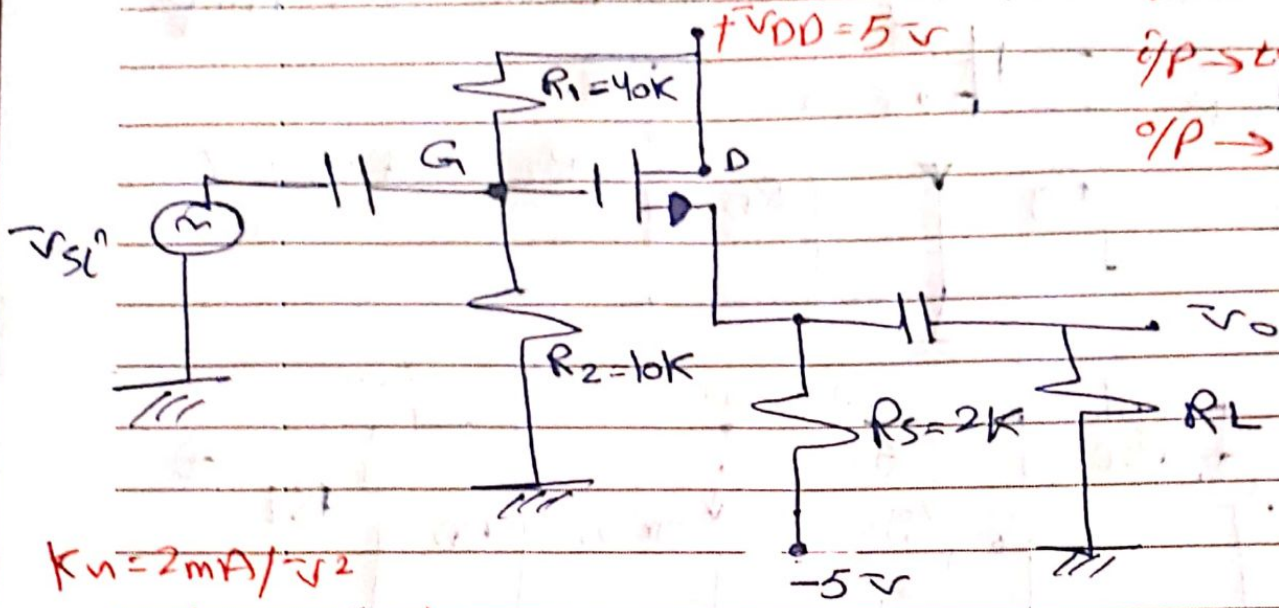 +VDD=5v
i/p→
R1=40K
o/p→
G
D
vsi
vo
R2=10K
Rs=2K
RL
Kn=2mA/v2
-5v